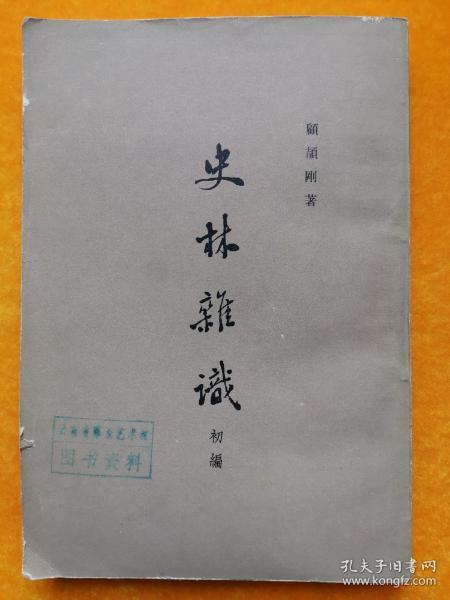 顧頡剛著
史林雜識
初編
图书资料
孔夫子旧书网
www.kongfz.com